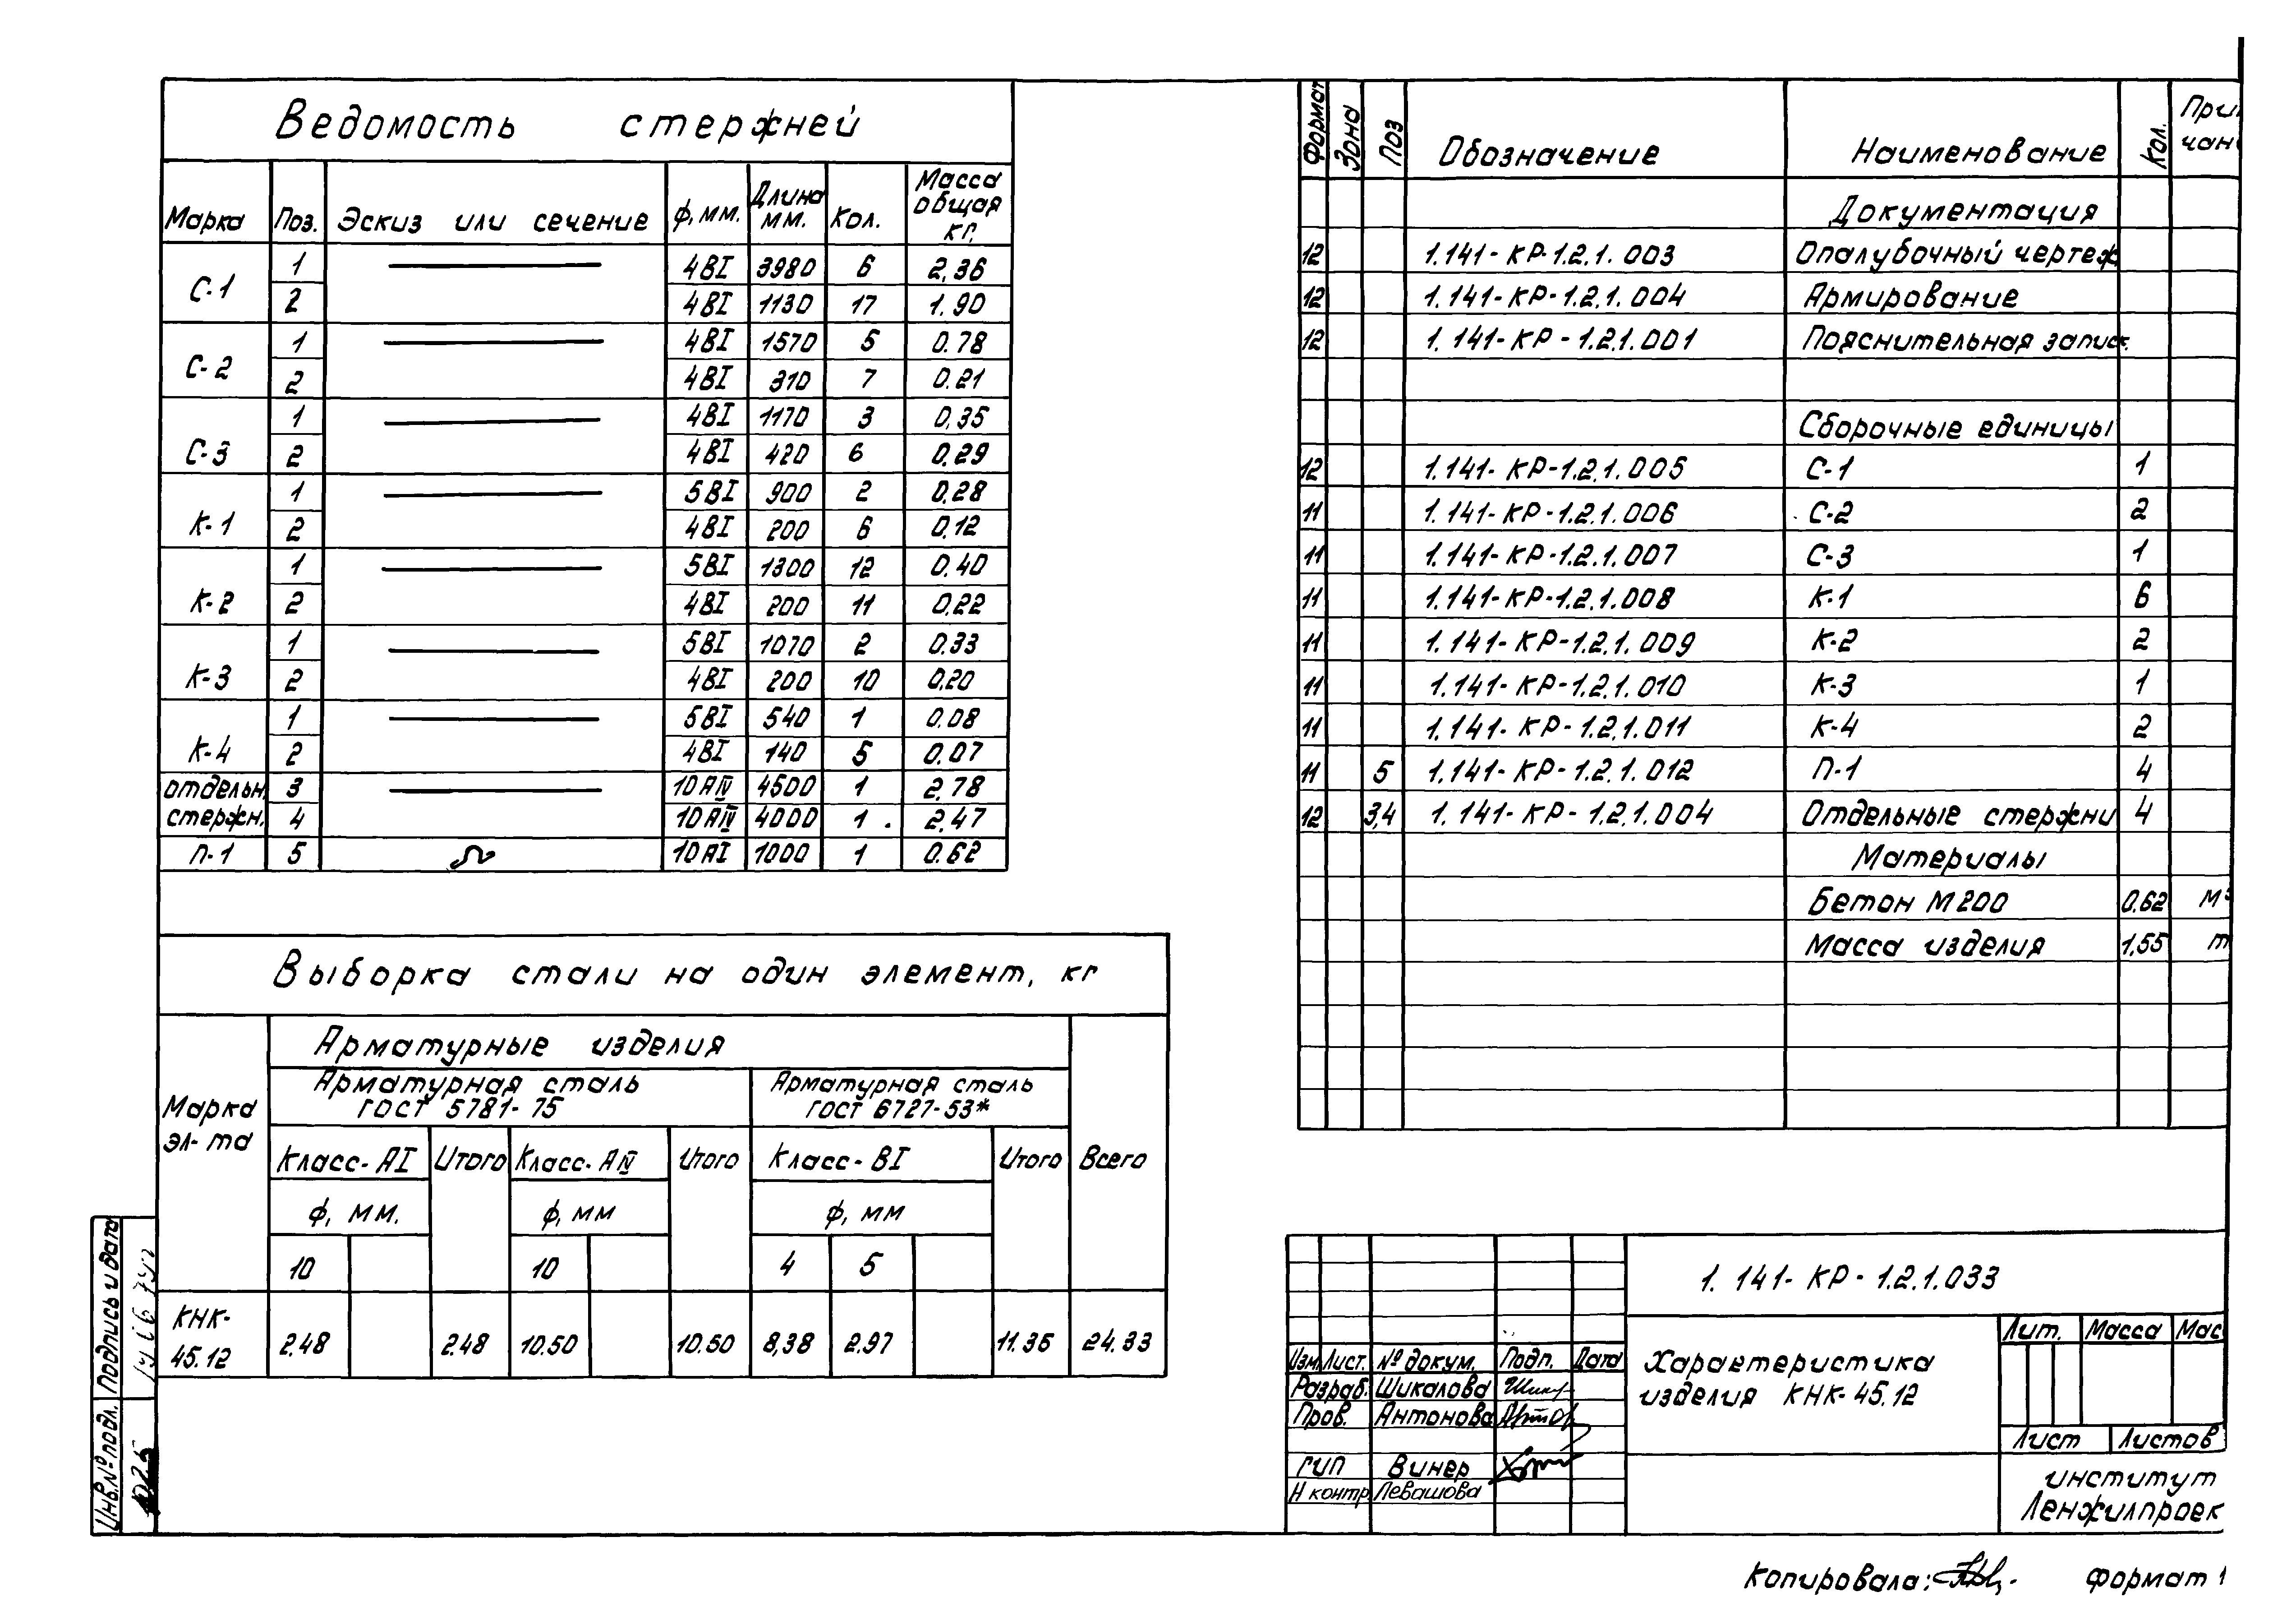 Ведомость стержней
Марка Поз. Эскиз или сечение ф,мм. Длина мм. Кол. Масса общая кг.
С-1 1 4ВI 3980 6 2,36
2 4ВI 1130 17 1.90
С-2 1 4ВI 1570 5 0.78
2 4ВI 310 7 0.21
С-3 1 4ВI 1170 3 0,35
2 4ВI 420 6 0.29
К-1 1 5ВI 900 2 0.28
2 4ВI 200 6 0,12
К-2 1 5ВI 1300 12 0.40
2 4ВI 200 11 0,22
К-3 1 5ВI 1070 2 0.33
2 4ВI 200 10 0,20
К-4 1 5ВI 540 1 0.08
2 4ВI 140 5 0.07
отдельн. 3 10АIV 4500 1 2.78
стержн. 4 10АIV 4000 1 2,47
П-1 5 10АI 1000 1 0.62
Выборка стали на один элемент, кг
Марка эл-та
Арматурные изделия
Арматурная сталь ГОСТ 5781-75
Арматурная сталь ГОСТ 6727-53*
Класс-АI Итого Класс-АIV Итого Класс-ВI Итого Всего
ф, мм. ф, мм ф, мм
10 10 4 5
КНК-45.12 2,48 2.48 10.50 10.50 8,38 2.97 11.35 24.33
Формат Зона Поз Обозначение Наименование Кол. При
чан
Документация
12 1.141-КР-1.2.1.003 Опалубочный чертеж
12 1.141-КР-1.2.1.004 Армирование
12 1.141-КР-1.2.1.001 Пояснительная запис
Сборочные единицы
12 1.141-КР-1.2.1.005 С-1 1
11 1.141-КР-1.2.1.006 С-2 2
11 1.141-КР-1.2.1.007 С-3 1
11 1.141-КР-1.2.1.008 К-1 6
11 1.141-КР-1.2.1.009 К-2 2
11 1.141-КР-1.2.1.010 К-3 1
11 1.141-КР-1.2.1.011 К-4 2
11 5 1.141-КР-1.2.1.012 П-1 4
12 3,4 1.141-КР-1.2.1.004 Отдельные стержни 4
Материалы
Бетон М200 0.62 м³
Масса изделия 1,55 т
1.141-КР-1.2.1.033
Характеристика
изделия КНК-45.12
Лит. Масса Мас
Лист Листов
институт
Ленжилпроек
Изм. Лист. № докум. Подп. Дата
Разраб. Шикалова
Пров. Антонова
ГИП Винер
Н контр Левашова
Подпись и дата
Инв.№ подл.
Копировала:
формат 1